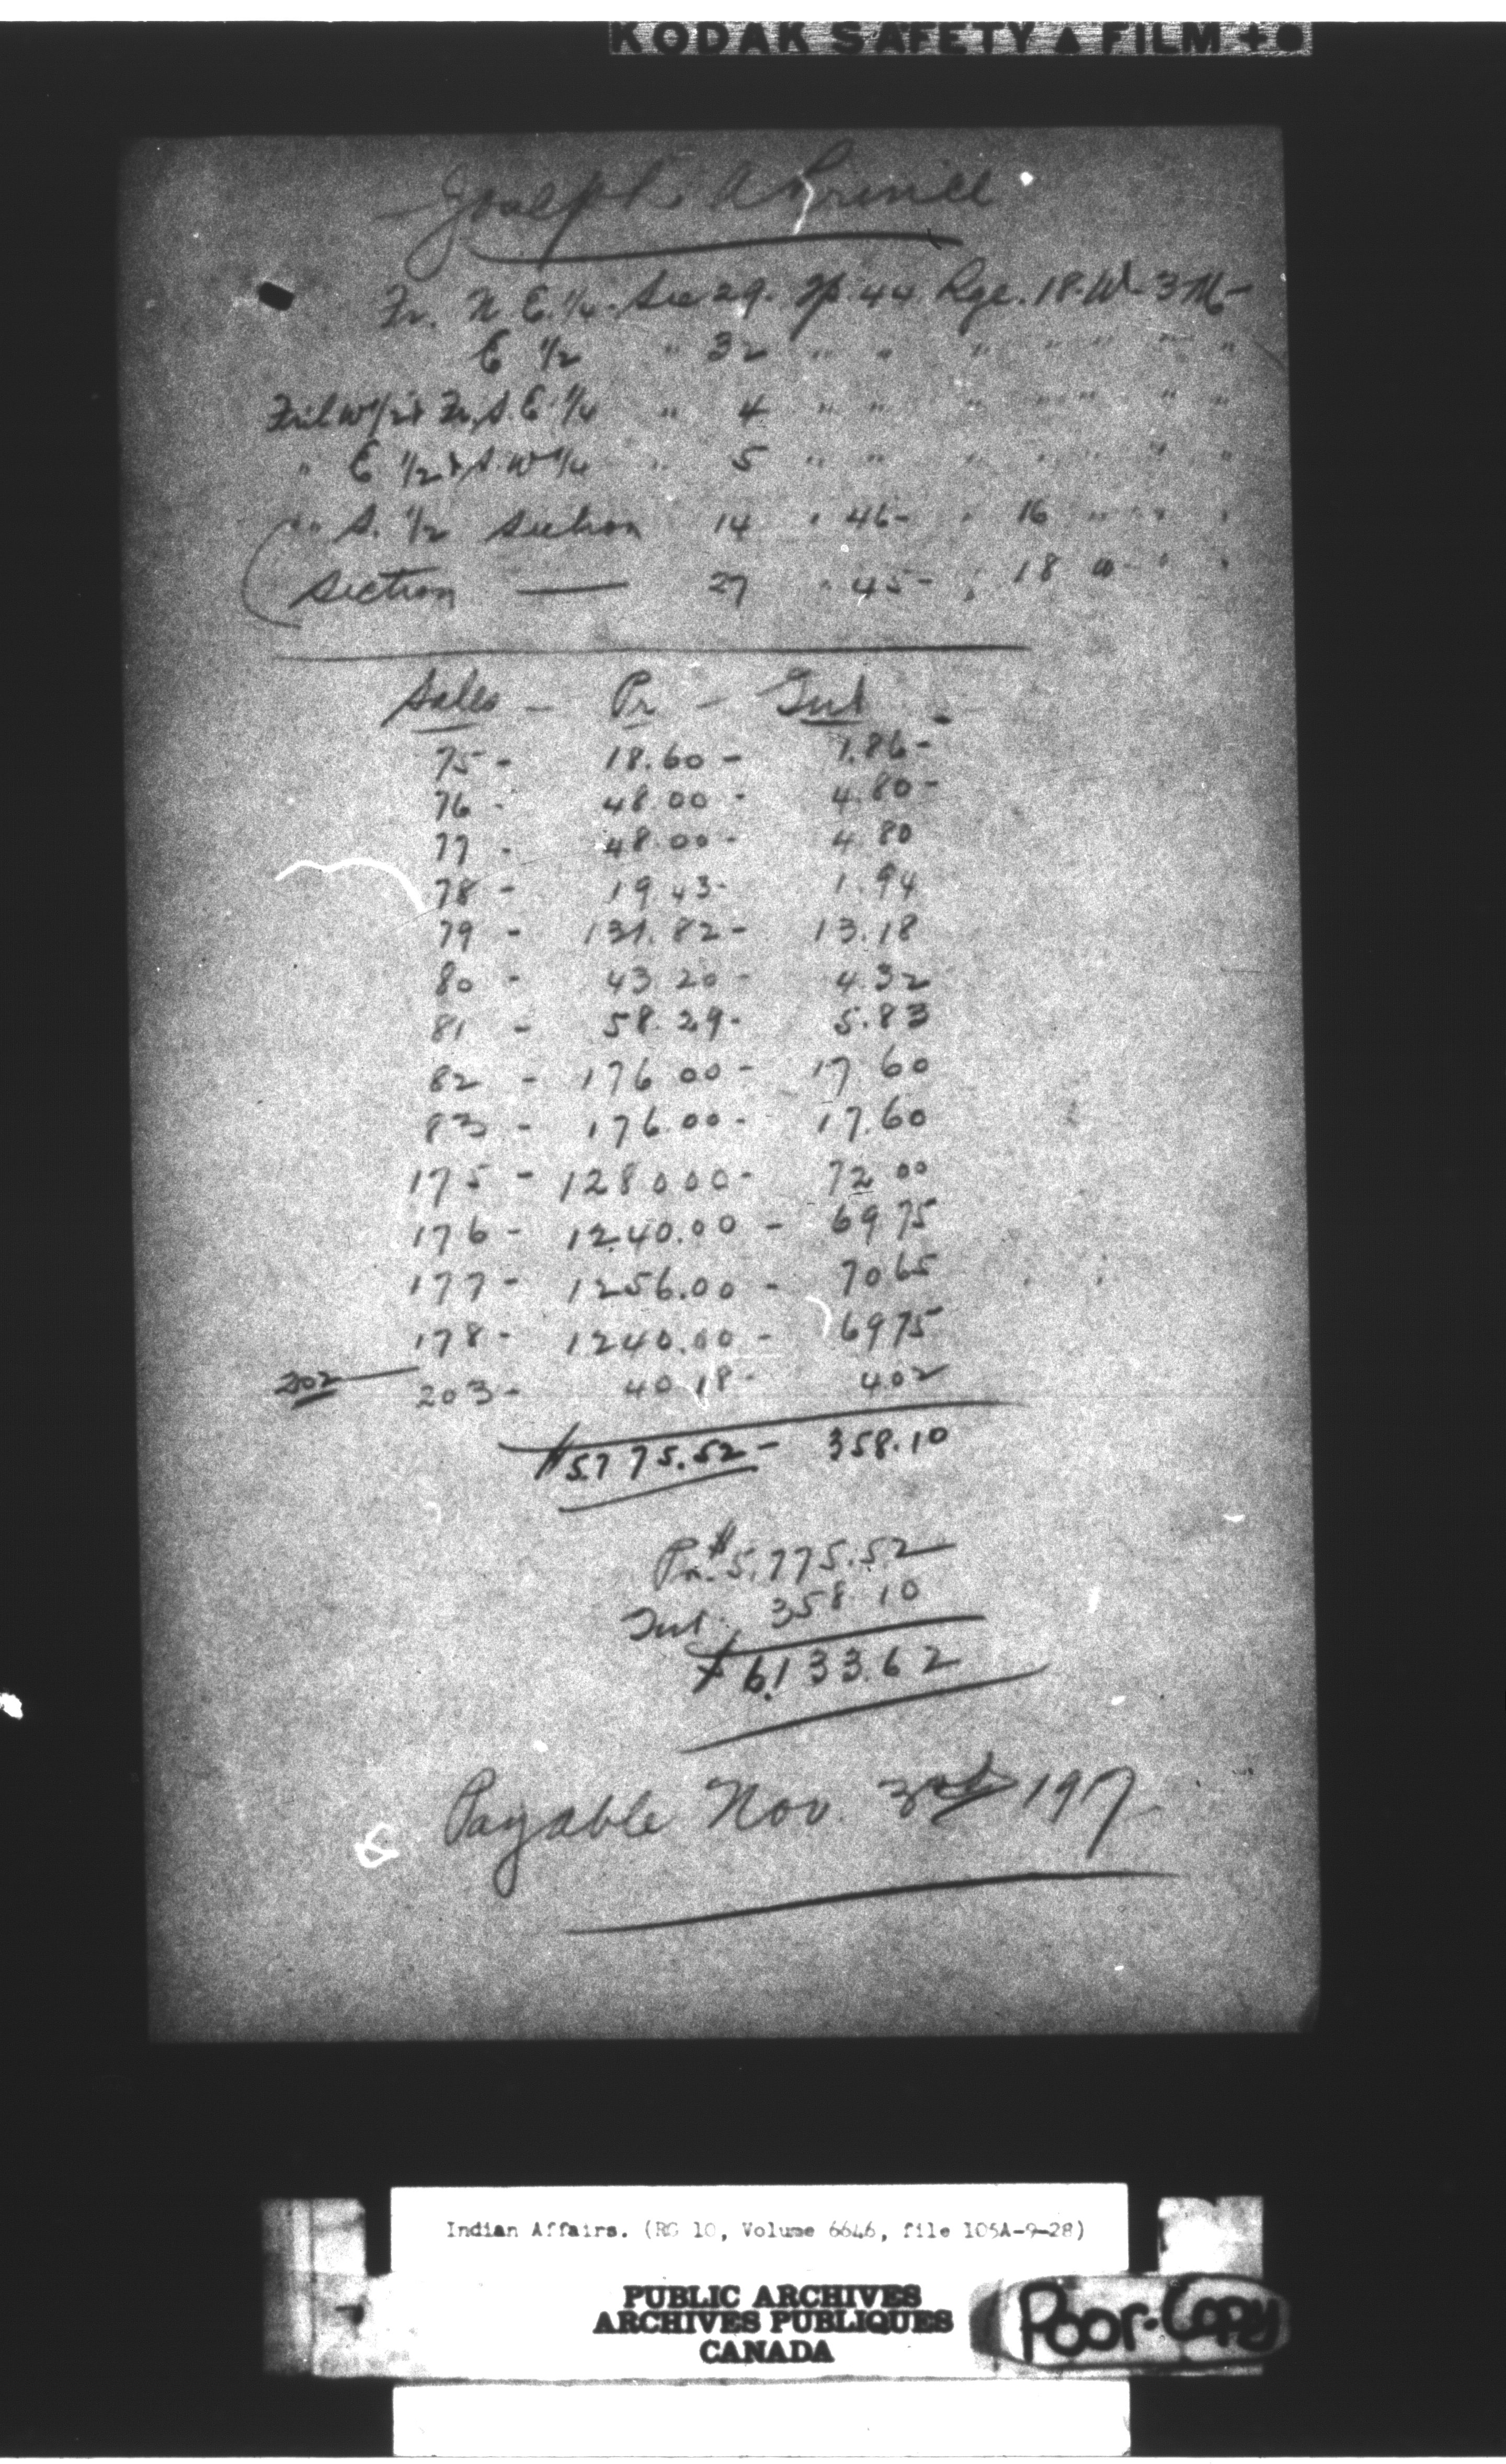 KODAK SAFETY ▲ FILM +●
Joseph A Prince
Fr. N. E. 1/4. Sec 29. Tp. 44 Rge. 18. W 3 M-
E 1/2 " 32 " " " " " " "
W 1/2 & Fr. S. E. 1/4 " 4 " " " " " " "
" E 1/2 & S. W 1/4 " 5 " " " " " " "
" " S. 1/2 Section 14 " 46- " 16 " " "
Section — 27 " 45- " 18 " " "
Sales - Pr - Int -
75 - 18.60 - 1.86 -
76 - 48.00 - 4.80 -
77 - 48.00 - 4.80
78 - 19.43 - 1.94
79 - 131.82 - 13.18
80 - 43.20 - 4.32
81 - 58.29 - 5.83
82 - 176.00 - 17.60
83 - 176.00 - 17.60
175 - 1280.00 - 72.00
176 - 1240.00 - 69.75
177 - 1256.00 - 70.65
178 - 1240.00 - 69.75
202 — 203 - 40.18 - 4.02
$5775.52 - 358.10
Pr. $5,775.52
Int. 358.10
$6,133.62
Payable Nov. 3rd 197
Indian Affairs. (RG 10, Volume 6646, file 105A-9-28)
PUBLIC ARCHIVES
ARCHIVES PUBLIQUES
CANADA
Poor-Copy